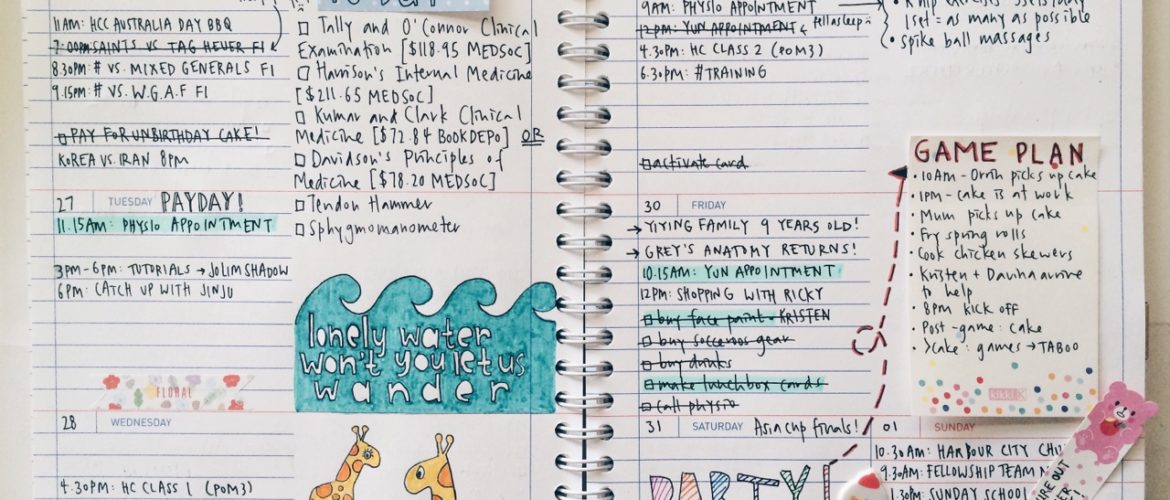 11AM: HCC AUSTRALIA DAY BBQ
7:00PM SAINTS VS TAG HEUER F1
8.30PM: # VS. MIXED GENERALS F1
9.15PM: # VS. W.G.A.F F1
□ PAY FOR UNBIRTHDAY CAKE!
KOREA VS. IRAN 8PM
27 TUESDAY PAYDAY!
11.15AM: PHYSIO APPOINTMENT
3PM-6PM: TUTORIALS → JOLIMSHADOW
6PM: CATCH UP WITH JINJU
FLORAL
28 WEDNESDAY
4.30PM: HC CLASS 1 (POM3)
□ Tally and O'Connor Clinical
Examination [$118.95 MEDSOC]
□ Harrison's Internal Medicine
[$211.65 MEDSOC]
□ Kumar and Clark Clinical
Medicine [$72.84 BOOKDEPO] OR
□ Davidson's Principles of
Medicine [$78.20 MEDSOC]
□ Tendon Hammer
□ Sphygmomanometer
lonely water
won't you let us
wander
9AM: PHYSIO APPOINTMENT
12PM: YUN APPOINTMENT fell asleep
4.30PM: HC CLASS 2 (POM3)
6.30PM: #TRAINING
□ activate card
1 set = as many as possible
• spike ball massages
30 FRIDAY
→ YIYING FAMILY 9 YEARS OLD!
→ GREY'S ANATOMY RETURNS!
10.15AM: YUN APPOINTMENT
12PM: SHOPPING WITH RICKY
□ buy face paint - KRISTEN
□ buy socceroos gear
□ buy drinks
□ make lunchbox cards
□ call physio
31 SATURDAY Asia Cup finals!
PARTY!
GAME PLAN
• 10AM - Orrin picks up cake
• 1PM - cake is at work
• Mum picks up cake
• Fry spring rolls
• Cook chicken skewers
• Kristen + Davina arrive
to help
• 8PM kick off
• Post-game: cake
• >cake: games → TABOO
kikki.K
01 SUNDAY
10.30AM: HARBOUR CITY
9.30AM: FELLOWSHIP TEAM
1.30PM: SUNDAY SCHOOL